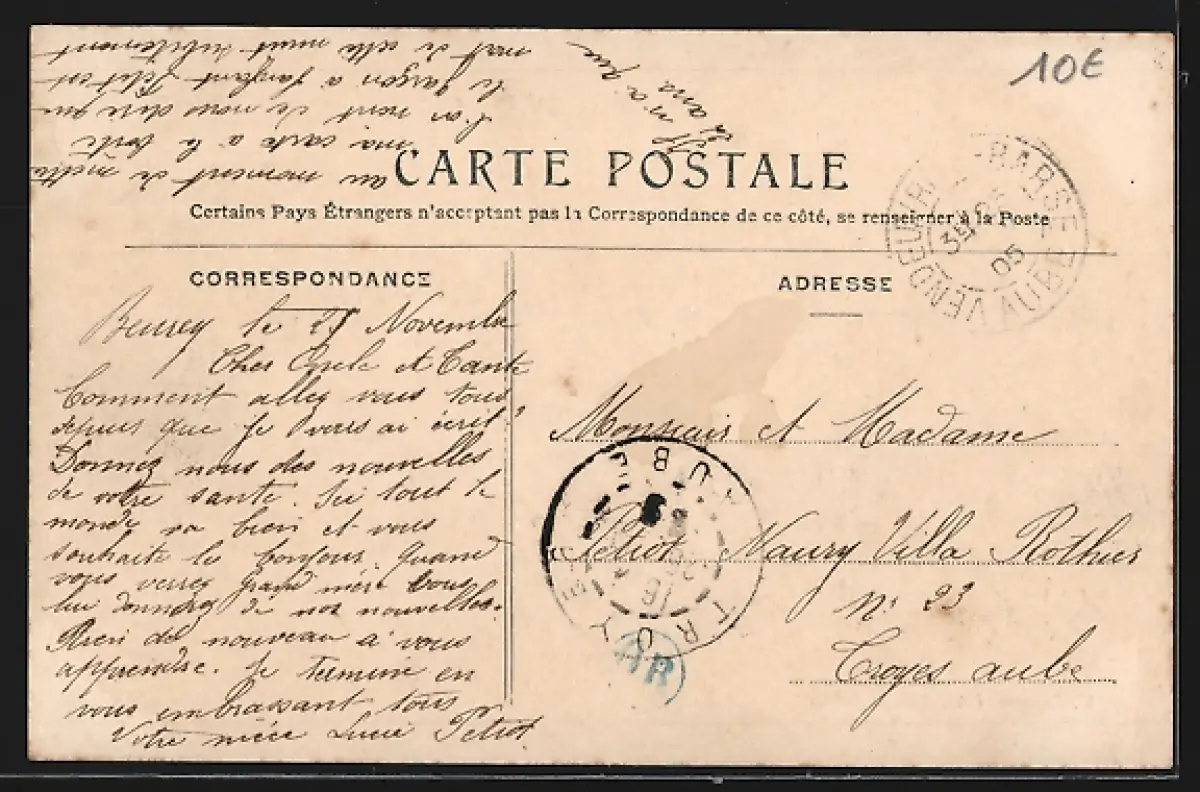 10€
CARTE POSTALE
Certains Pays Étrangers n'acceptant pas la Correspondance de ce côté, se renseigner à la Poste
CORRESPONDANCE
Beurey le 25 Novembre
Cher Oncle et Tante
Comment allez vous tous
depuis que je vous ai écrit?
Donnez nous des nouvelles
de votre sante. Ici tout le
monde va bien et vous
souhaite le bonjour. Quand
vous verrez grand mère vous
lui donnerez de nos nouvelles.
Rien de nouveau à vous
apprendre. Je termine en
vous embrassant tous
Votre nièce Lucie Petiot
au moment de mettre
ma carte à la boîte
l'on vient de nous dire que
le garçon a
mort de cette nuit subitement
il n'a pas
ADRESSE
Monsieur et Madame
Petiot Naury Villa Rothier
N° 23
Troyes aube
VENDEUVRE-S-BARSE
05
AUBE
TROYES
AUBE
AR